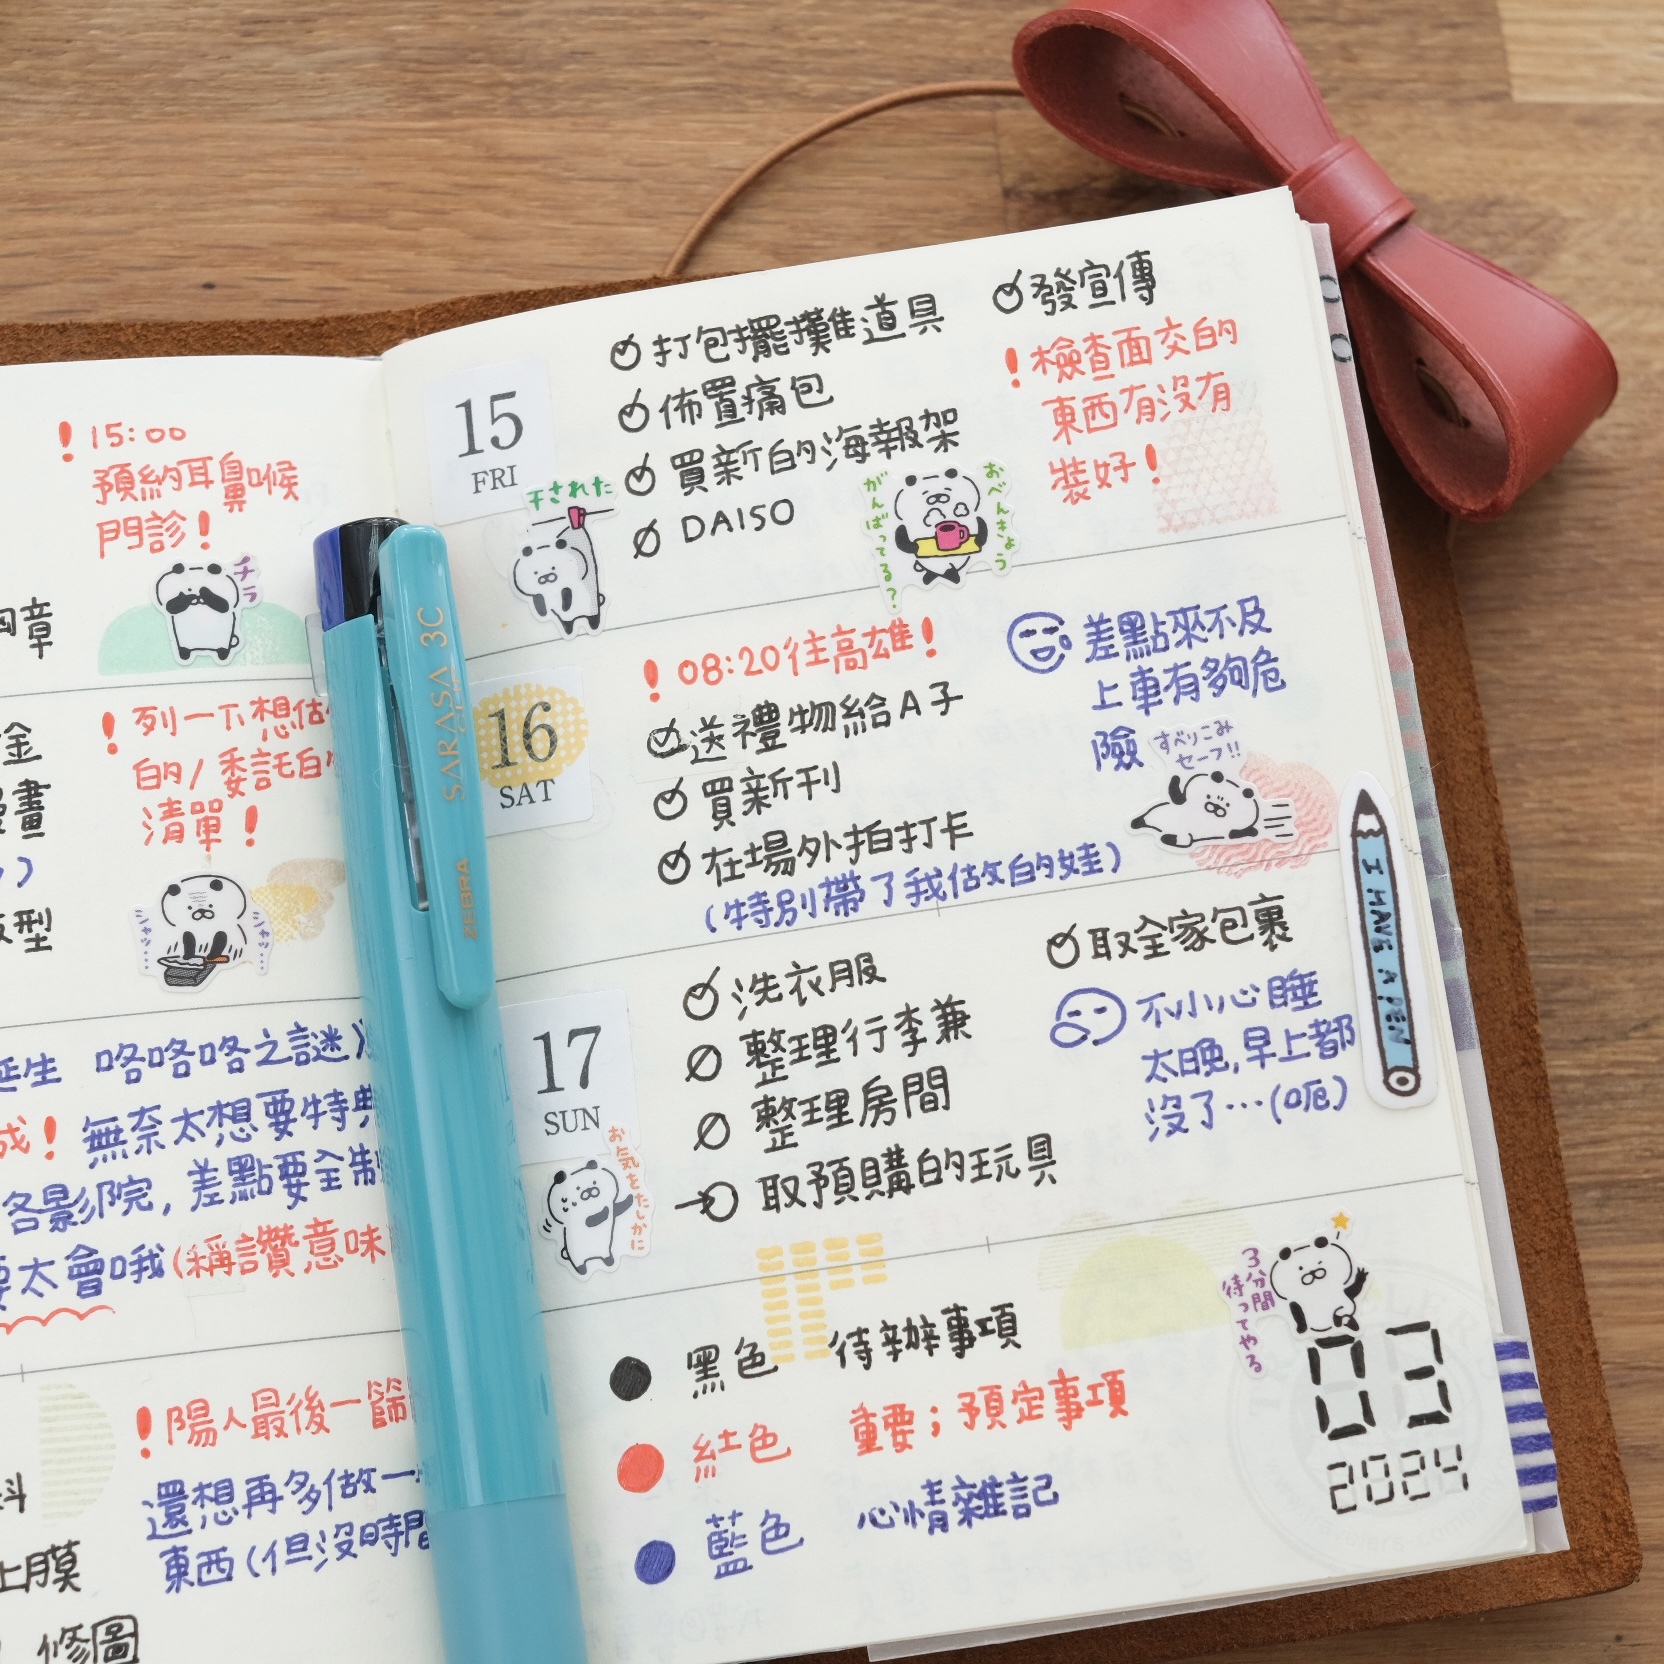 !15:00
預約耳鼻喉
門診!
チラ
章
!列一下想
的/委託
清單!
金
畫
型
シャッ…
シャッ…
誕生 咯咯咯之謎》
成!無奈太想要特典
各影院,差點要全制
要太會哦(稱讚意味
!陽人最後一篩
還想再多做一
東西(但沒時間
上膜
修圖
SARASA 3C
ZEBRA
15
FRI
打包擺攤道具
佈置痛包
買新的海報架
DAISO
發宣傳
!檢查面交的
東西有沒有
裝好!
干された
おべんきょう
がんばってる?
16
SAT
!08:20往高雄!
送禮物給A子
買新刊
在場外拍打卡
(特別帶了我做的娃)
差點來不及
上車有夠危
險
すべりこみ
セーフ!!
I HAVE A PEN
17
SUN
洗衣服
整理行李兼
整理房間
取預購的玩具
取全家包裹
不小心睡
太晚,早上都
沒了…(呃)
お気をたしかに
黑色 待辦事項
紅色 重要;預定事項
藍色 心情雜記
3分間
待ってやる
03
2024